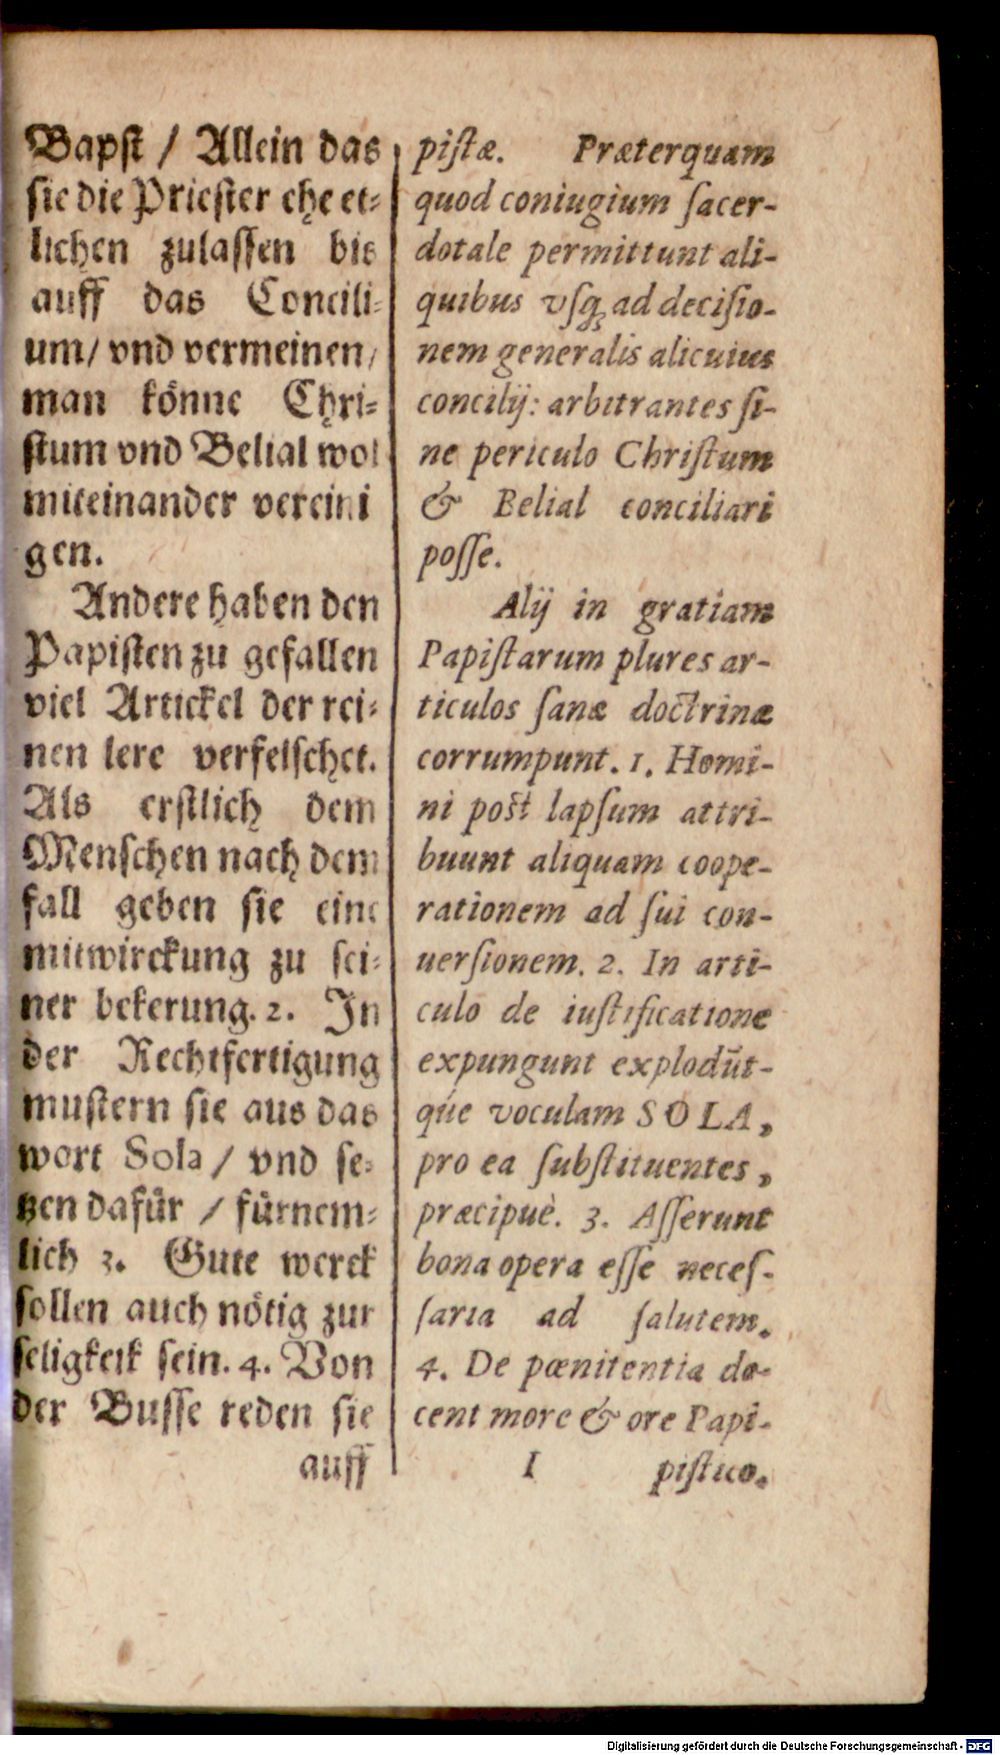 Bapſt / Allein das
ſie die Prieſter ehe et⸗
lichen zulaſſen bis
auff das Concili⸗
um/ vnd vermeinen/
man könne Chri⸗
ſtum vnd Belial wol
miteinander vereini
gen.
Andere haben den
Papiſten zu gefallen
viel Artickel der rei⸗
nen lere verfelſchet.
Als erſtlich dem
Menſchen nach dem
fall geben ſie eine
mitwirckung zu ſei⸗
ner bekerung. 2. In
der Rechtfertigung
muſtern ſie aus das
wort Sola / vnd ſe⸗
tzen dafür / fürnem⸗
lich 3. Gute werck
ſollen auch nötig zur
ſeligkeit ſein. 4. Von
der Buſſe reden ſie
auff
piſtæ. Præterquam
quod coniugium ſacer-
dotale permittunt ali-
quibus vſq; ad deciſio-
nem generalis alicuius
concilij: arbitrantes ſi-
ne periculo Chriſtum
& Belial conciliari
poſſe.
Alij in gratiam
Papiſtarum plures ar-
ticulos ſanæ doctrinæ
corrumpunt. 1. Homi-
ni poſt lapſum attri-
buunt aliquam coope-
rationem ad ſui con-
uerſionem. 2. In arti-
culo de iuſtificatione
expungunt explodūt-
qúe voculam SOLA,
pro ea ſubſtituentes,
præcipuè. 3. Aſſerunt
bona opera eſſe neceſ-
ſaria ad ſalutem.
4. De pœnitentia do-
cent more & ore Papi-
I piſtico.
Digitalisierung gefördert durch die Deutsche Forschungsgemeinschaft - DFG